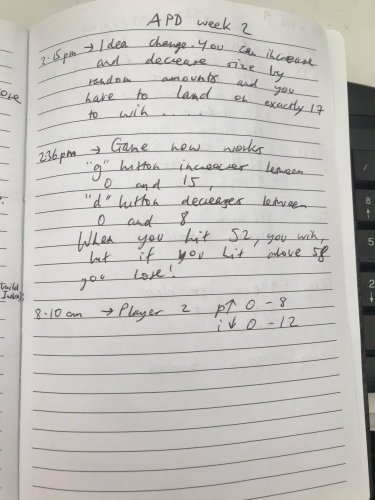 APD week 2
2.15pm → Idea change. You can increase
and decrease size by
random amounts and you
have to land on exactly 17
to win.....
2.36pm → Game now works
"g" button increases between
0 and 15,
"d" button decreases between
0 and 8
When you hit 52, you win,
but if you hit above 58
you lose!
8.10am → Player 2 p↑ 0-8
i↓ 0-12